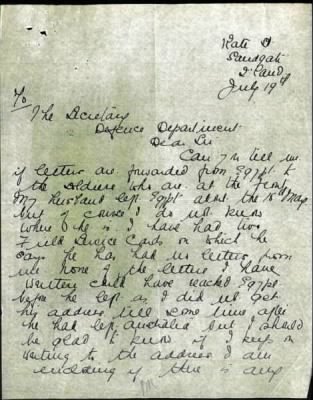 Kate St
Sandgate
Q'land
July 19th
To
The Secretary
Defence Department
Dear Sir
Can you tell me
if letters are forwarded from Egypt to
the soldiers who are at the Front
My husband left Egypt about the 15th May
but of course I do not know
where he is I have had two
Field Service Cards on which he
says he has had no letter from
me none of the letters I have
written could have reached Egypt
before he left as I did not get
his address till some time after
he had left Australia but I should
be glad to know if I keep on
writing to the address I am
enclosing if there is any